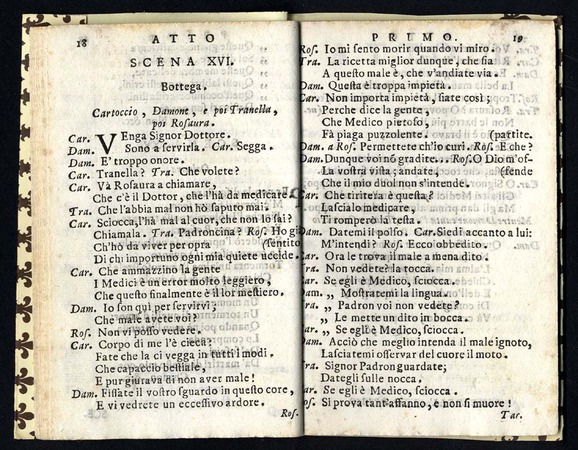 18 ATTO
SCENA XVI.
Bottega.
Cartoccio, Damone, e poi Tranella,
poi Rosaura.
Car. VEnga Signor Dottore.
Dam. Sono a servirla. Car. Segga.
Dam. E' troppo onore.
Car. Tranella? Tra. Che volete?
Car. Và Rosaura a chiamare,
Che c'è il Dottor, che l'hà da medicare.
Tra. Che l'abbia mal non hò saputo mai.
Car. Sciocca, l'hà mal al cuor, che non lo sai?
Chiamala. Tra. Padroncina? Ros. Ho gi
Ch'hò da viver per opra (sentito
Di chi importuno ogni mia quiete uccide.
Car. Che ammazzino la gente
I Medici è un error molto leggiero,
Che questo finalmente è il lor mestiero.
Dam. Io son quì per servirvi;
Che male avete voi?
Ros. Non vi posso vedere.
Car. Corpo di me l'è cieca?
Fate che la ci vegga in tutti i modi.
Che capaccio bestiale,
E pur giurava di non aver male!
Dam. Fissate il vostro sguardo in questo core,
E vi vedrete un eccessivo ardore.
Ros.
PRIMO. 19
Ros. Io mi sento morir quando vi miro.
Tra. La ricetta miglior dunque, che sia
A questo male è, che v'andiate via.
Dam. Questa è troppa impietà.
Car. Non importa impietà, siate così;
Perche dice la gente,
Che Medico pietoso,
Fà piaga puzzolente. (partite.
Dam. a Ros. Permettete ch'io curi. Ros. E che?
Dam. Dunque voi nõ gradite... Ros. O Dio m'of-
La vostra vista; andate, (fende
Che il mio duol non s'intende.
Car. Che tiritera è questa?
Lascialo medicare,
Ti romperò la testa.
Dam. Datemi il polso. Car. Siedi accanto a lui:
M'intendi? Ros. Ecco obbedito.
Car. Ora le trova il male a mena dito.
Tra. Non vedete? la tocca.
Car. Se egli è Medico, sciocca.
Dam. „ Mostratemi la lingua.
Tra. „ Padron voi non vedete?
„ Le mette un dito in bocca.
Car. „ Se egli è Medico, sciocca.
Dam. Acciò che meglio intenda il male ignoto,
Lasciatemi osservar del cuore il moto.
Tra. Signor Padron guardate;
Dategli sulle nocca.
Car. Se egli è Medico, sciocca.
Ros. Si prova tant'affanno, e non si muore!
Tar.